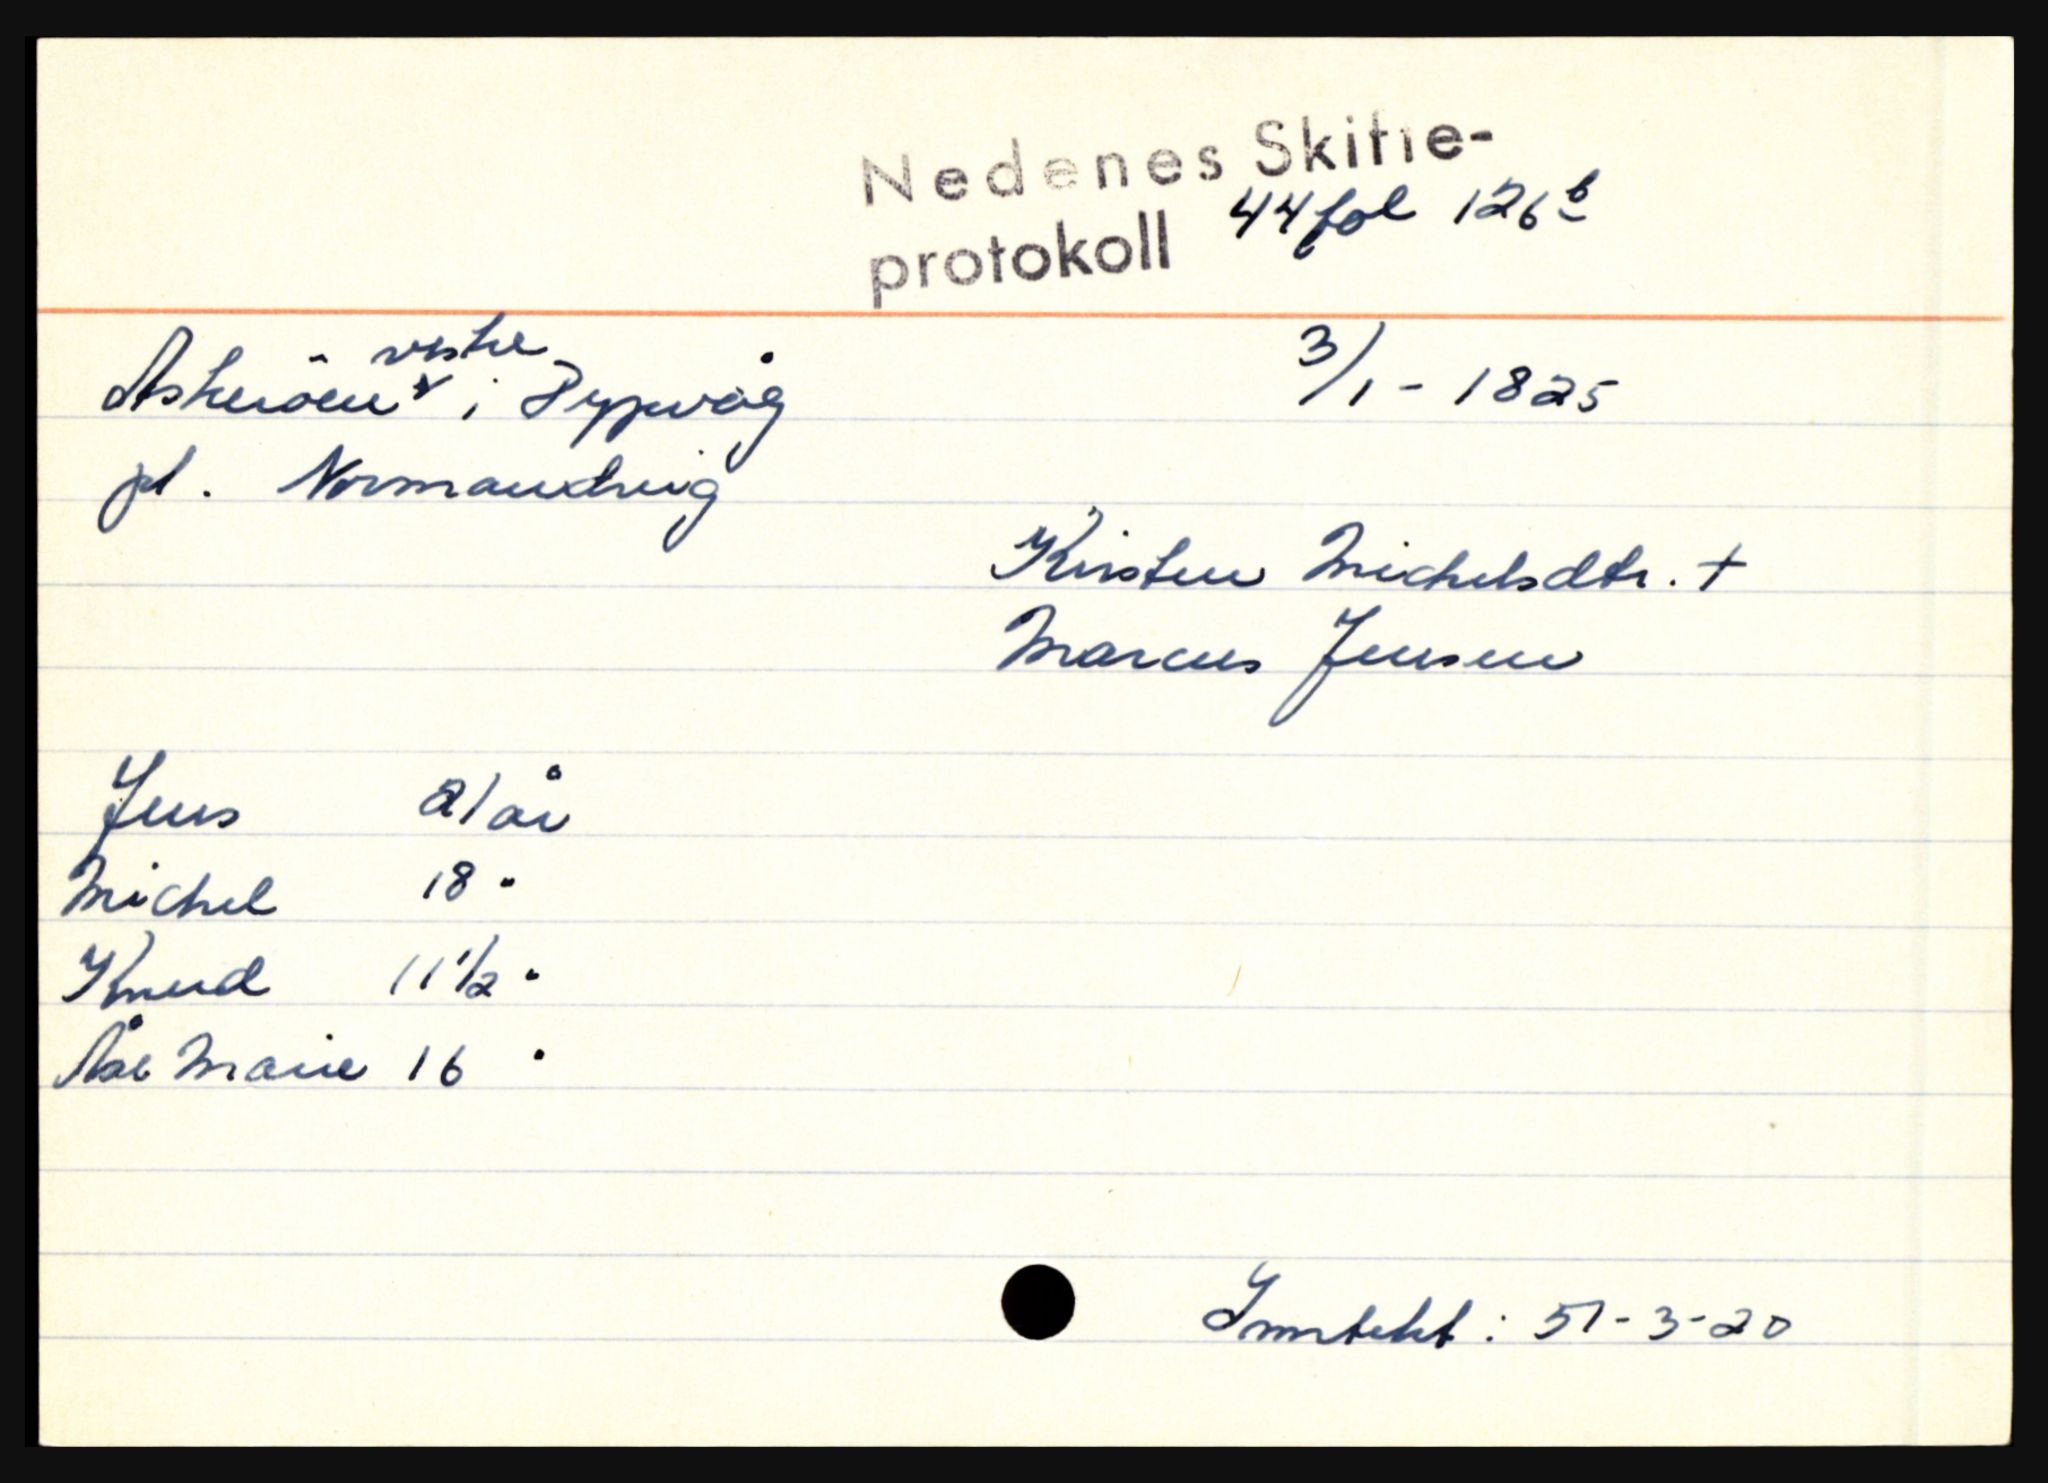 Nedenes Skifte-
protokoll 44 fol 126 b
Askerøen vestre i Dypvåg 3/1 - 1825
pl. Normandvig
Kirsten Michelsdtr. +
Marcus Jensen
Jens 21 år
Michel 18 "
Knud 11 1/2 "
Åse Marie 16 "
Inntekt: 51-3-20